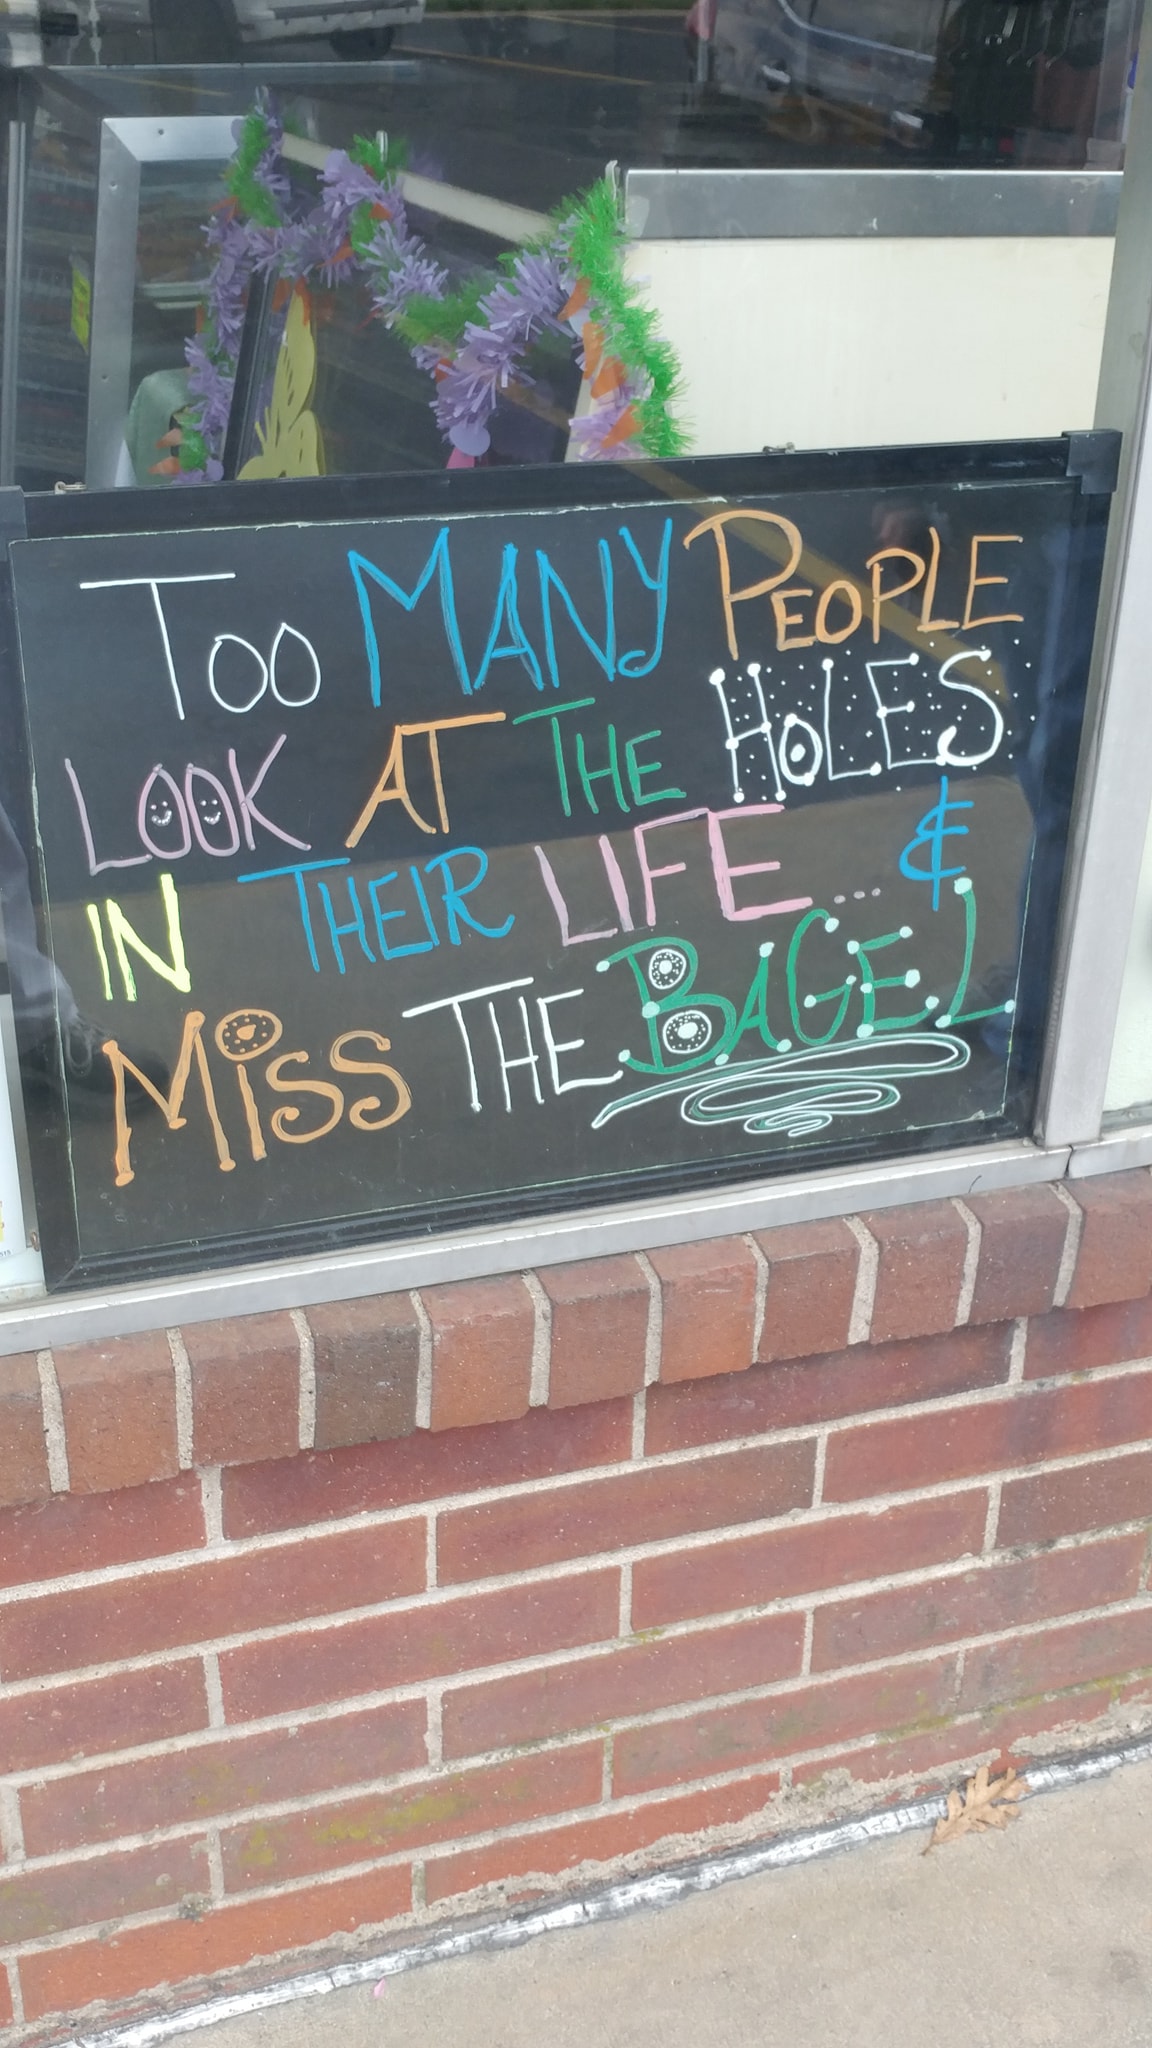 Too MANY PEOPLE
LOOK AT THE HOLES
IN THEIR LIFE.... &
MiSS THE BAGEL